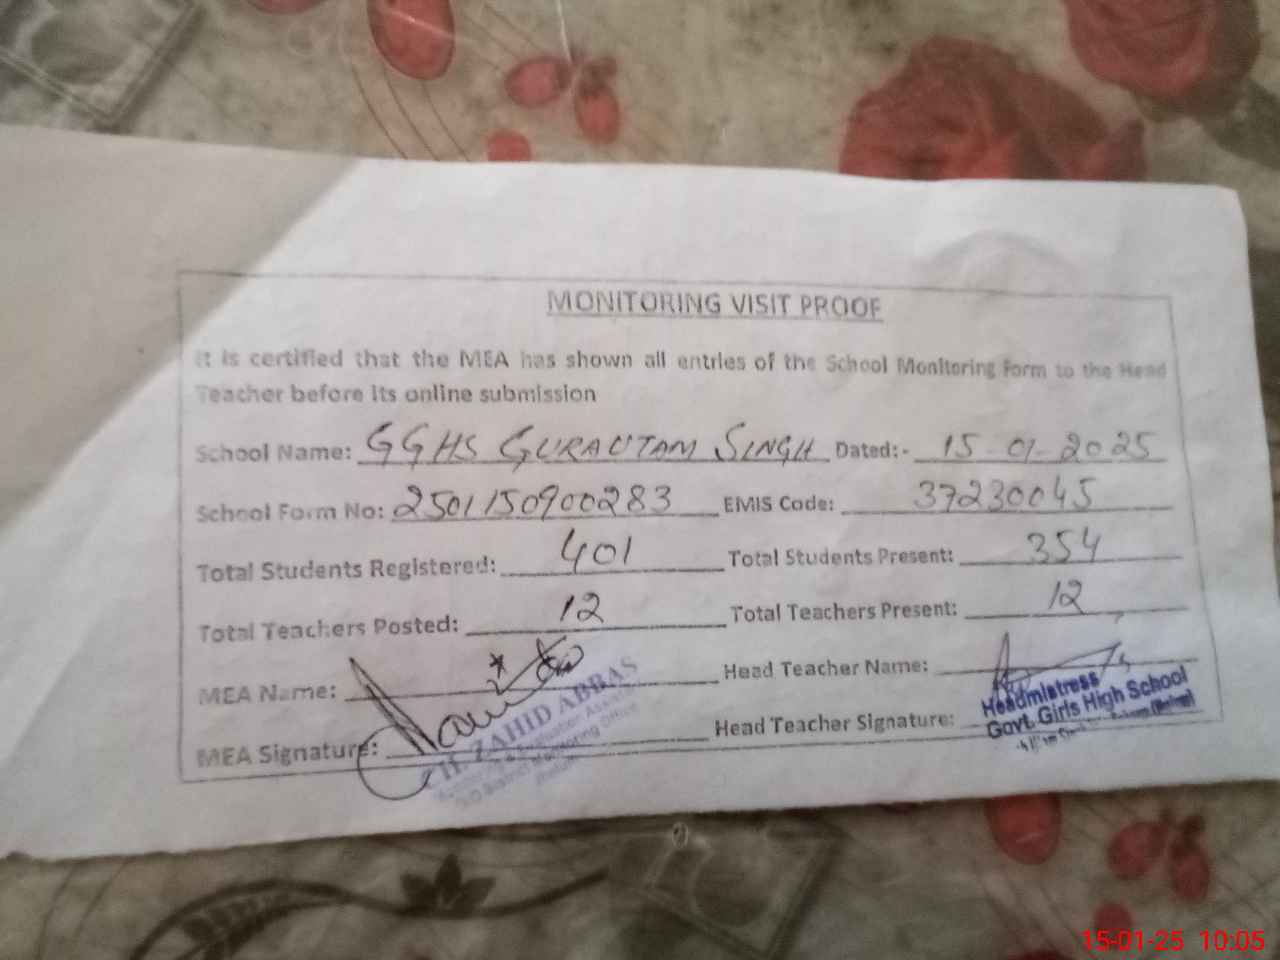 MONITORING VISIT PROOF
It is certified that the MEA has shown all entries of the School Monitoring Form to the Head
Teacher before its online submission
School Name: GGHS GURAUTAM SINGH Dated:- 15-01-2025
School Form No: 2501150900283 EMIS Code: 37230045
Total Students Registered: 401 Total Students Present: 354
Total Teachers Posted: 12 Total Teachers Present: 12
MEA Name: Head Teacher Name:
MEA Signature: Head Teacher Signature:
CH. ZAHID ABBAS
Evaluation
District Monitoring Office
Headmistress
Govt. Girls High School
15-01-25 10:05